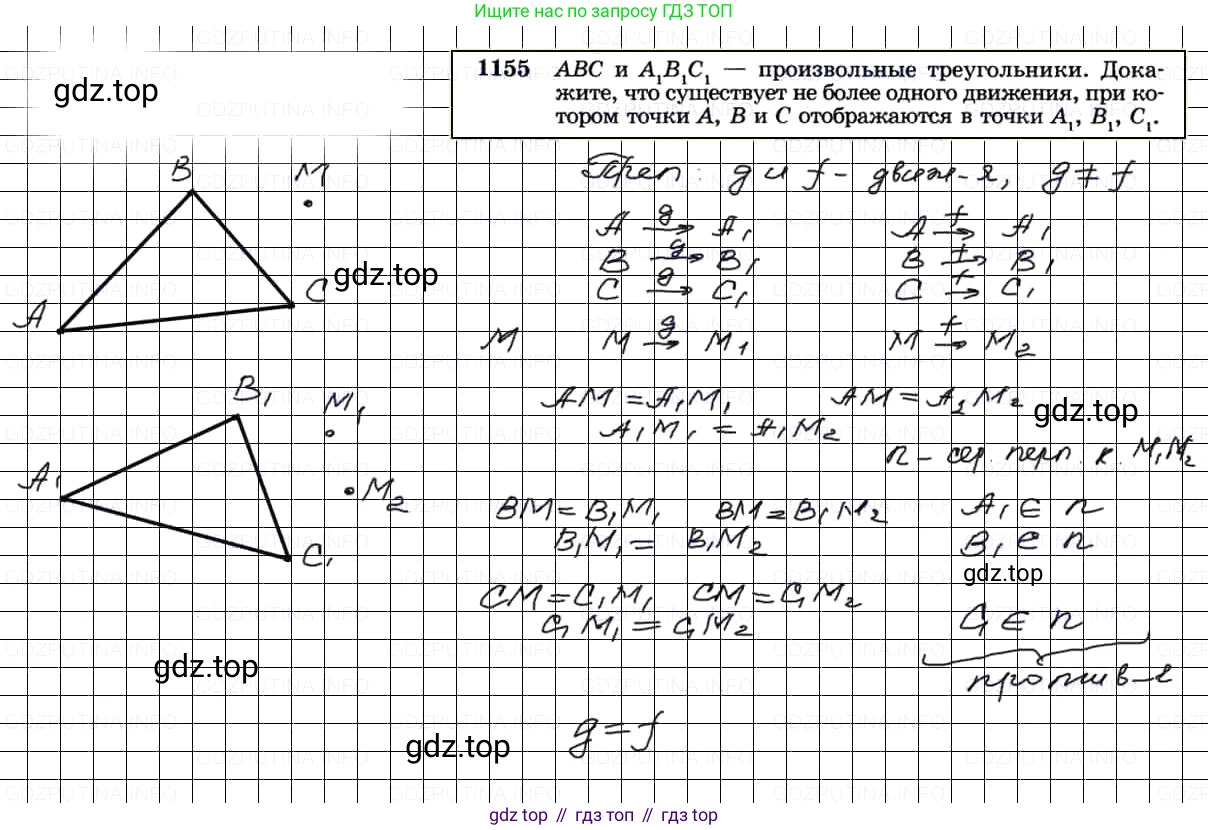 Ищите нас по запросу ГДЗ ТОП
gdz.top
1155 ABC и A₁B₁C₁ — произвольные треугольники. Дока-
жите, что существует не более одного движения, при ко-
тором точки A, B и C отображаются в точки A₁, B₁, C₁.
B M
A C
gdz.top
Преп: g и f - движ-я, g ≠ f
A →g A₁ A →f A₁
B →g B₁ B →f B₁
C →g C₁ C →f C₁
M M →g M₁ M →f M₂
B₁ M₁
A₁ M₂
C₁
AM = A₁M₁ AM = A₂M₂
gdz.top
A₁M₁ = A₁M₂
n - сер. перп. к. M₁M₂
BM = B₁M₁ BM = B₁M₂ A₁ ∈ n
B₁M₁ = B₁M₂ B₁ ∈ n
gdz.top
CM = C₁M₁ CM = C₁M₂
C₁M₁ = C₁M₂ C₁ ∈ n
gdz.top
против-е
g = f
gdz.top
gdz.top // гдз.топ // gdz.top
GDZPUTINA.INFO